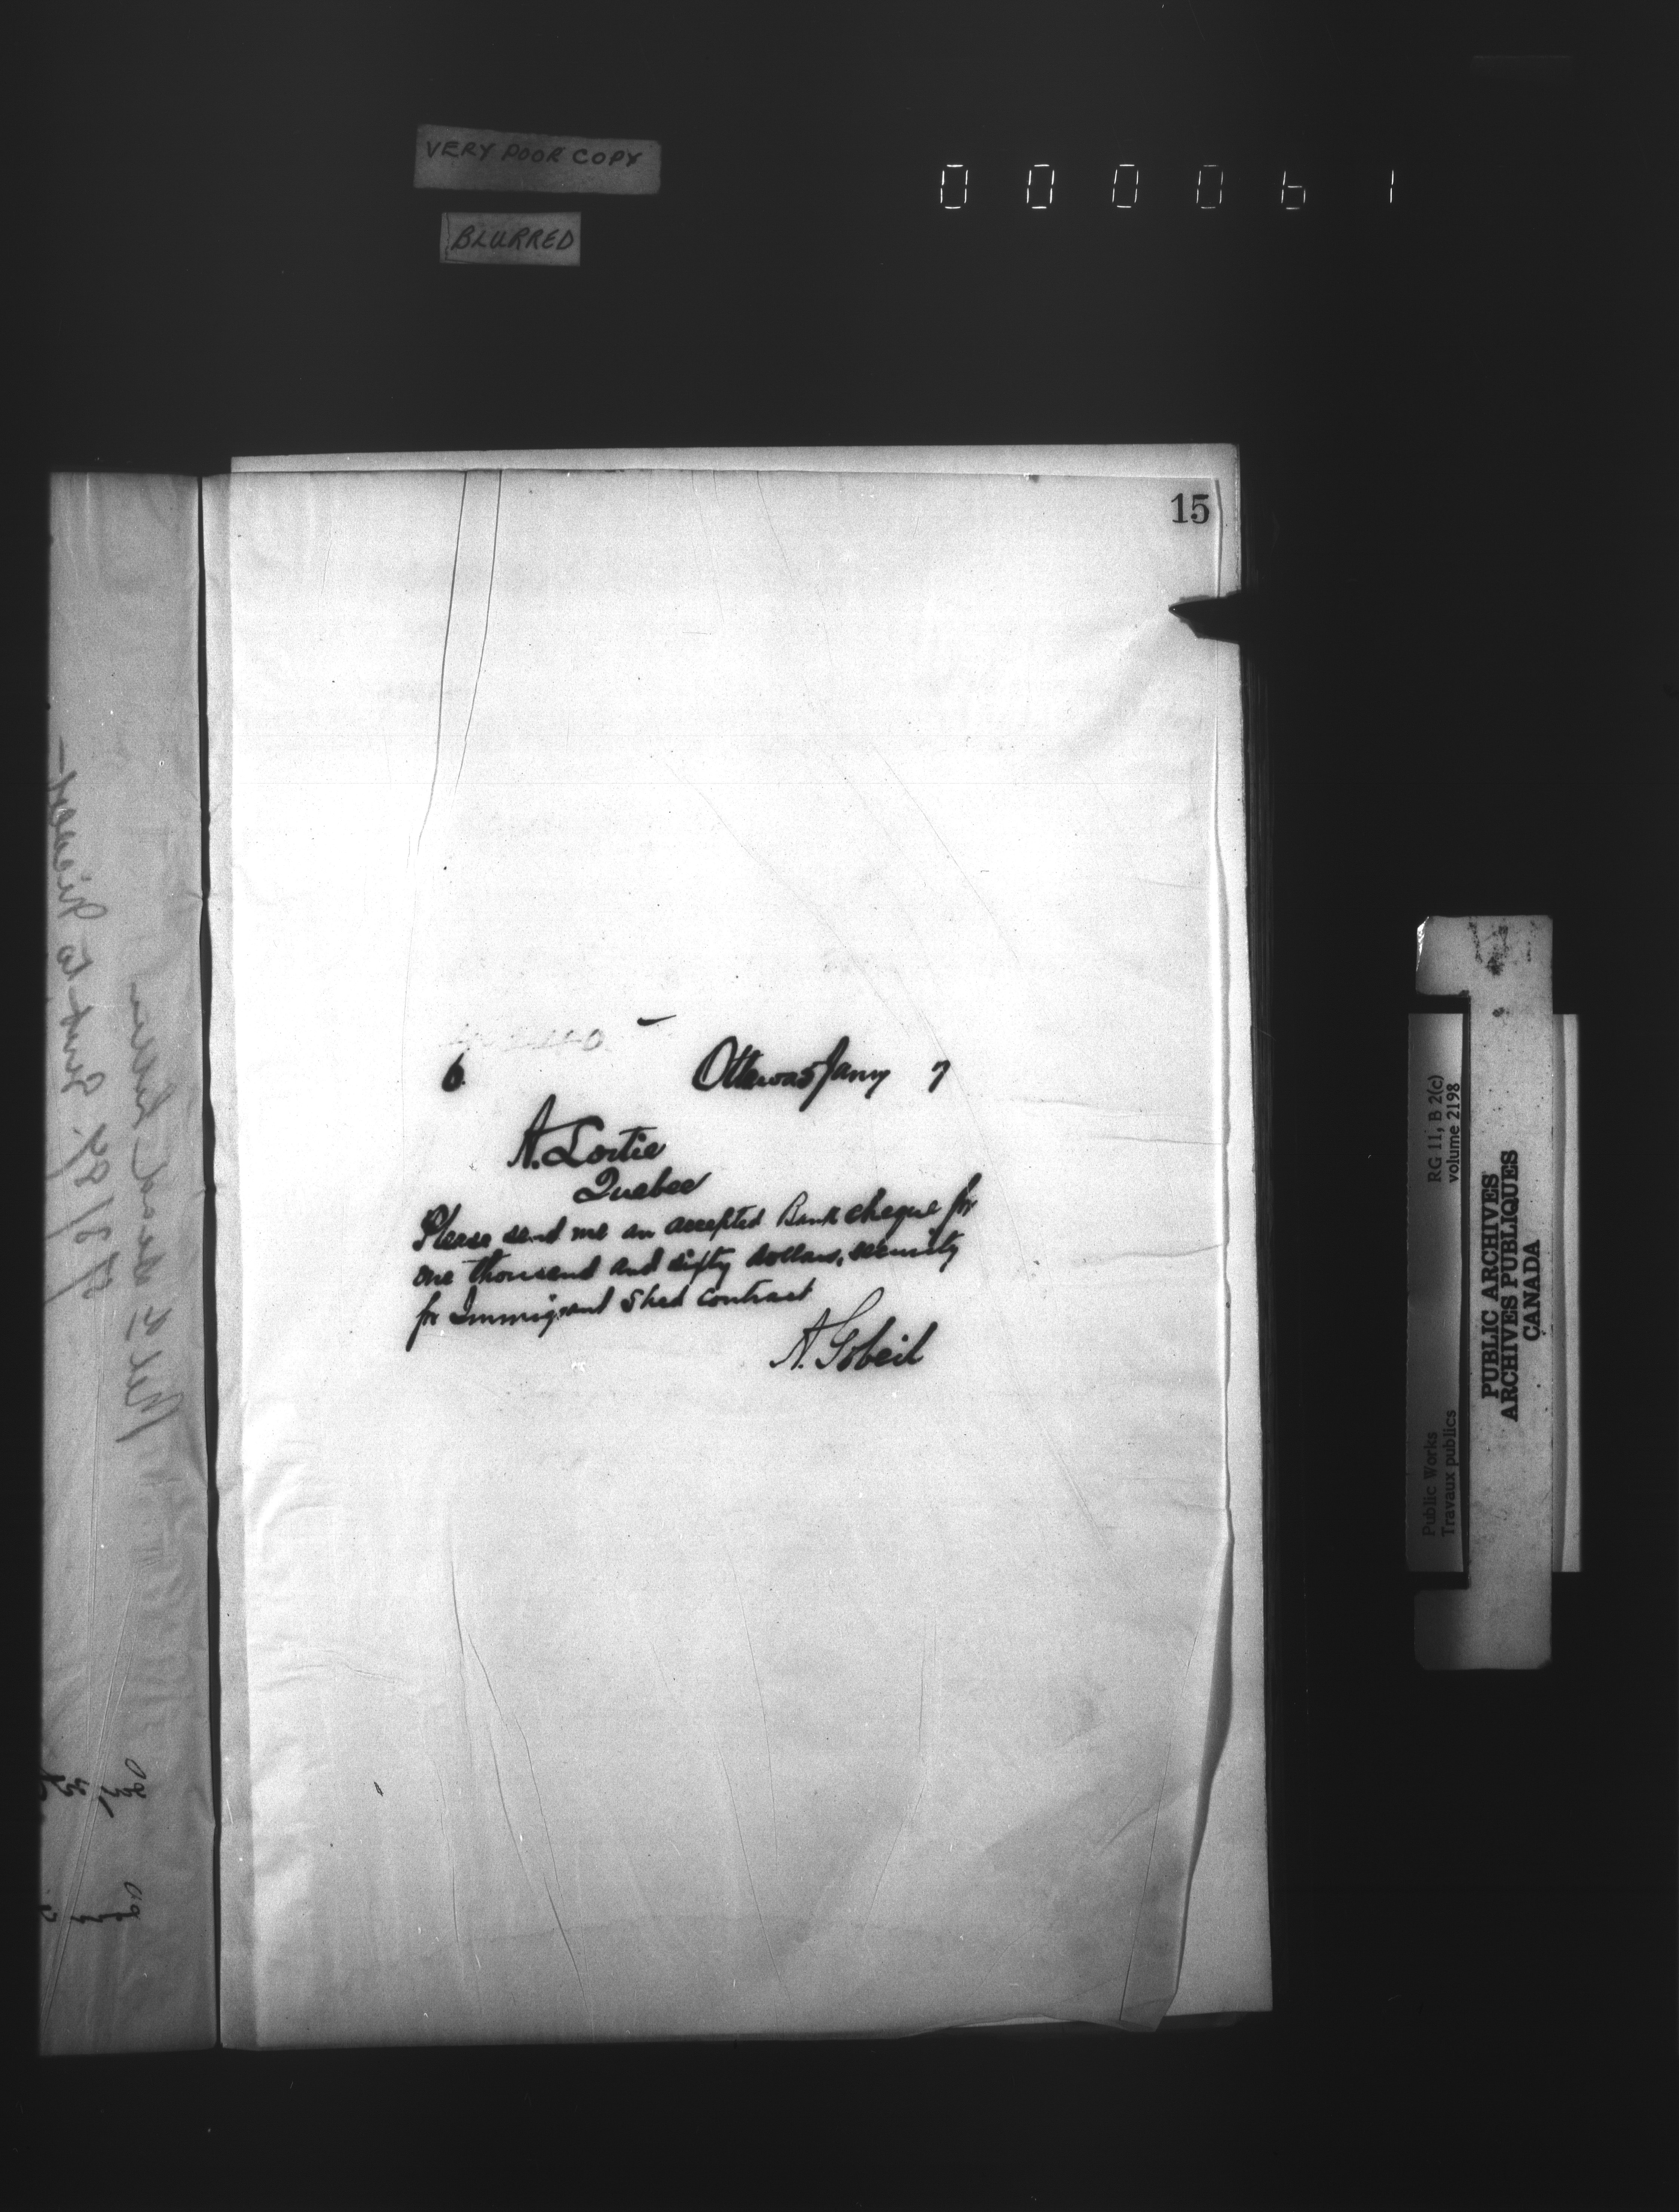 VERY POOR COPY
BLURRED
000061
15
6 Ottawa Jany 7
A. Lortie
Quebec
Please send me an accepted Bank cheque for
one thousand and sixty dollars, security
for Immigrant Shed contract
A. Gobeil
Public Works
Travaux publics
RG 11, B 2(c)
volume 2198
PUBLIC ARCHIVES
ARCHIVES PUBLIQUES
CANADA